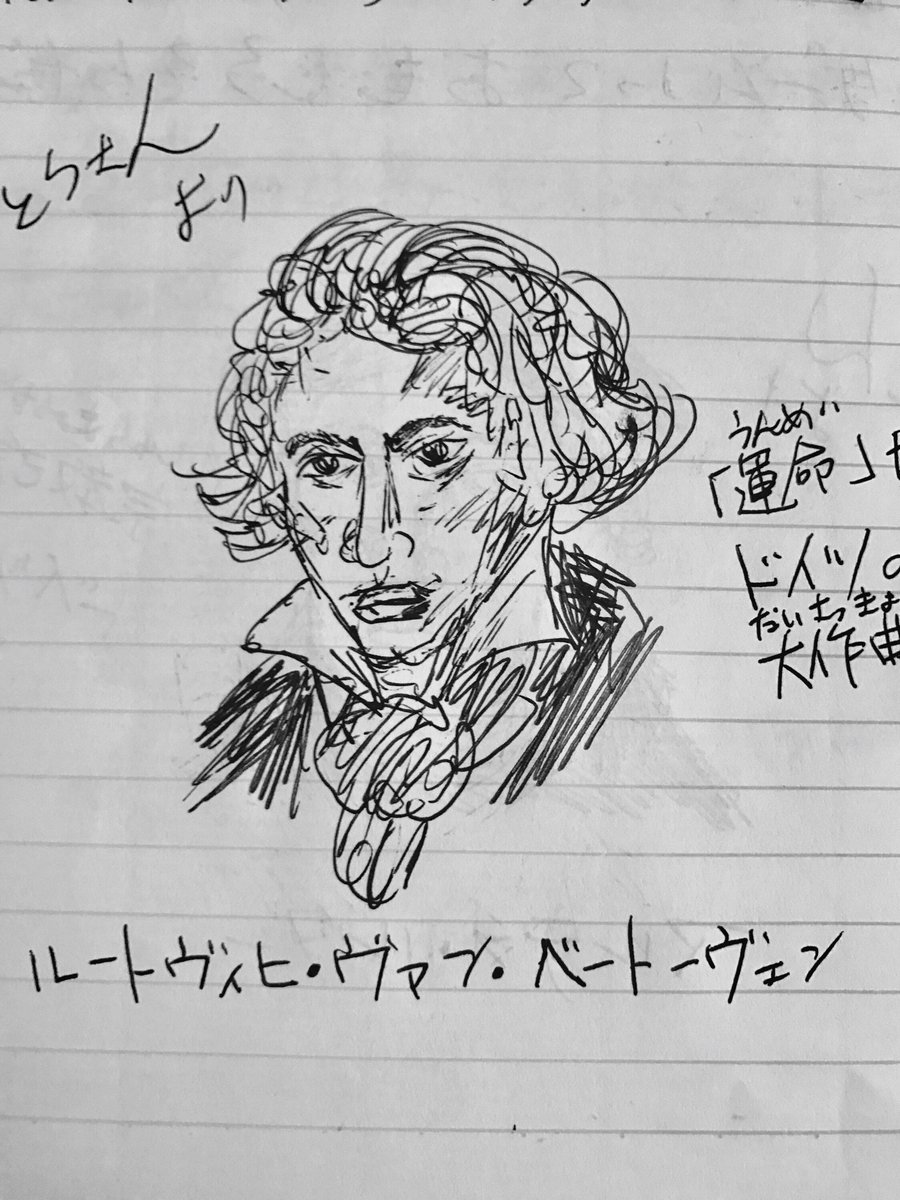 とらさん
より
うんめい
「運命」
ドイツの
だいさっきょ
大作曲
ルートヴィヒ・ヴァン・ベートーヴェン